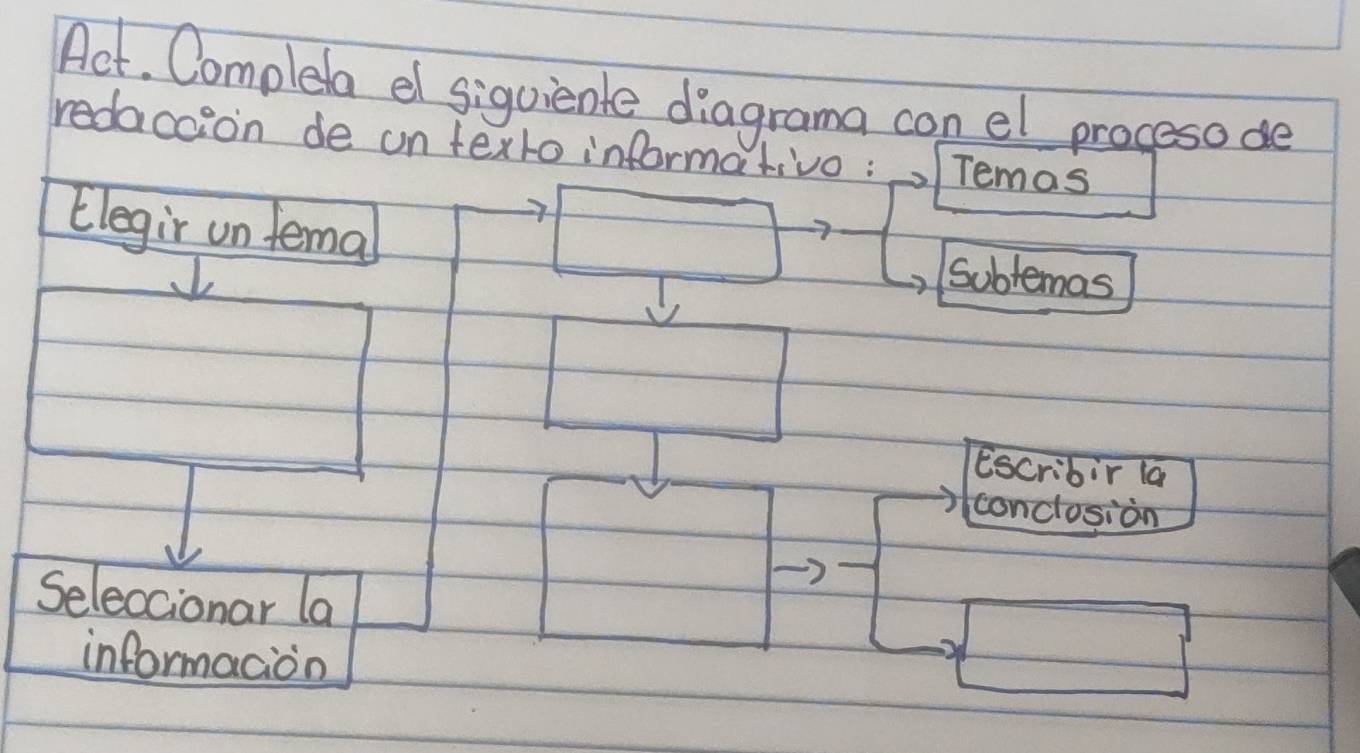 Act. Completa el siguiente diagrama con el proceso de
redacción de un texto informativo:
Temas
Elegir un tema
Subtemas
Escribir la
conclusión
Seleccionar la
información